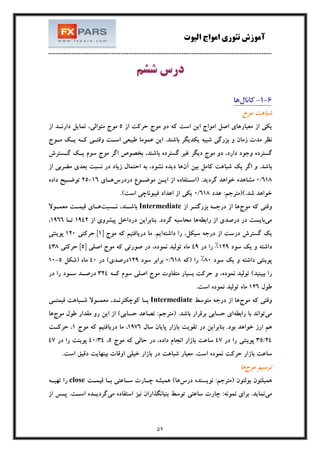 FX PARS
www.fxpars.com
آموزش تئوری امواج الیوت
درس ششم
۶-۱- کانال‌ها
شباهت موج
یکی از معیارهای اصل امواج این است که دو موج حرکت از ۵ موج متوالی، تمایل دارنــد از
نظر مدت زمان و بزرگی شبیه یکدیگر باشند. این عموما طبیعی اسـت وقتـی کـه یـک مـوج
گسترده وجود دارد، دو موج دیگر غیر گسترده باشند. بخصوص اگر موج سوم یـک گسـترش
باشد. و اگر یک شباهت کامل بین آن‌ها دیده نشود، به احتمال زیاد در نسبت بعدی مضربی از
۰/۶۱۸ مشاهده خواهد گردید. (اسـتفاده از ایـن موضـوع دردرس‌هـای ۱۶-۲۵ توضـیح داده
خواهد شد.)(مترجم: عدد ۰/۶۱۸ یکی از اعداد فیبوناچی است).
وقتی که موج‌ها از درجـه بزرگتـر از Intermediate باشـند، نسـبت‌هـای قیمـت معمـولا
می‌بایست در درصدی از رابطه‌ها محاسبه گردد. بنابراین درداخل پیشروی از ۱۹۴۲ تـا ۱۹۶۶،
یک گسترش درست از درجه سیکل، را داشته‌ایم. ما دریافتیم که موج [۱] حرکتی ۱۲۰ پوینتی
داشته و یک سود ۱۲۹٪ را در ۴۹ ماه تولید نموده، در صورتی که موج اصلی [۵] حرکتی ۴۳۸
پوینتی داشته و یک سود ۸۰٪ را (که ۰/۶۱۸ برابر سود ۱۲۹درصدی) در ۴۰ ماه (شکل ۵-۱۰
را ببینید) تولید نموده، و حرکت بسیار متفاوت موج اصلی سوم کـه ۳۲۴ درصـد سـود را در
طول ۱۲۶ ماه تولید نموده است.
وقتی که موج‌ها از درجه متوسط Intermediate یـا کوچکترنـد، معمـولا شـباهت قیمتـی
می‌تواند با رابطه‌ای حسابی برقرار باشد. (مترجم: تصاعد حسابی) از این رو مقدار طول موج‌ها
هم ارز خواهد بود. بنابراین در تقویت بازار پایان سال ۱۹۷۶، ما دریافتیم که موج ۱، حرکـت
۳۵/۲۴ پوینتی را در ۴۷ ساعت بازار انجام داده، در حالی که موج ۵، ۴۰/۳۴ پوینت را در ۴۷
ساعت بازار حرکت نموده است. معیار شباهت در بازار خیلی اوقات بینهایت دقیق است.
ترسیم موج‌ها
همیلتون بولتون (مترجم: نویسنده درس‌ها) همیشه چـارت سـاعتی بـا قیمـت close را تهیـه
می‌نماید. برای نمونه: چارت ساعتی توسط بنیانگذاران نیز استفاده می‌گردیـده اسـت. پـس از
۵۲